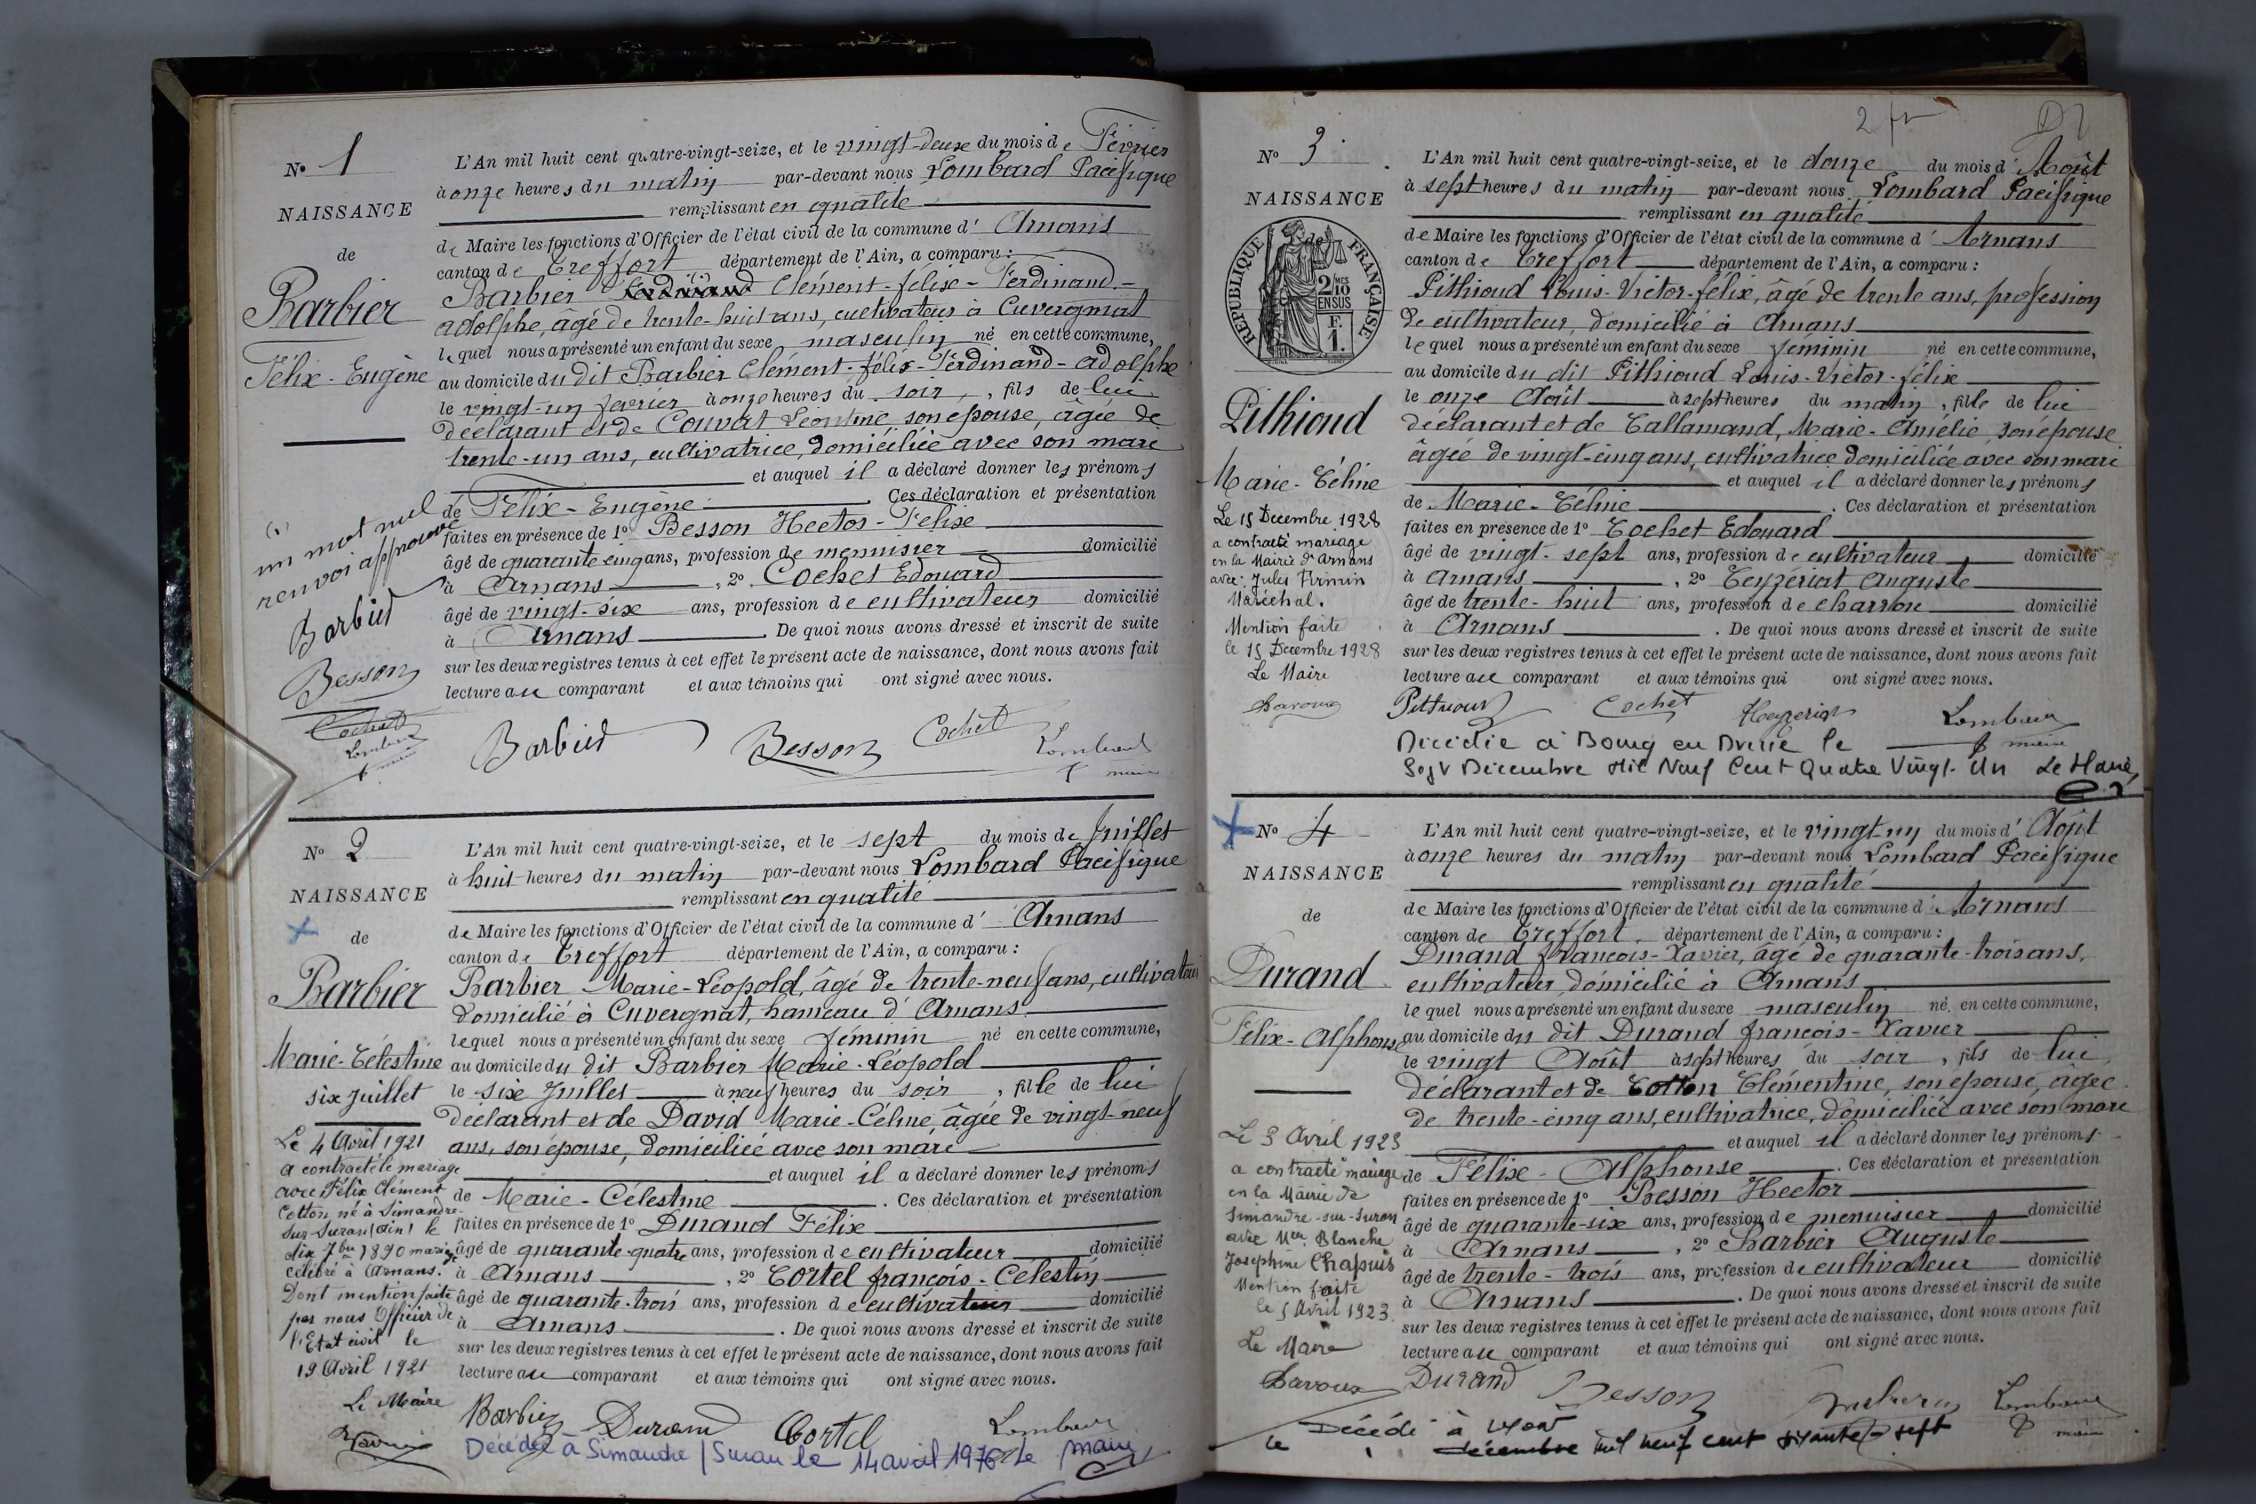 No 1
NAISSANCE
de
Barbier
Félix-Eugène
L'An mil huit cent quatre-vingt-seize, et le vingt-deux du mois de Février
à onze heures du matin par-devant nous Lombard Pacifique
remplissant en qualité
de Maire les fonctions d'Officier de l'état civil de la commune d' Arnans
canton de Treffort département de l'Ain, a comparu :
Barbier Clément-félix-Ferdinand-
adolphe, âgé de trente-huit ans, cultivateur à Cuvergnat
lequel nous a présenté un enfant du sexe masculin né en cette commune,
au domicile du dit Barbier Clément-félix-Ferdinand-adolphe
le vingt-un février à onze heures du soir, fils de lui
déclarant et de Couvat Léontine, son épouse, âgée de
trente-un ans, cultivatrice, domiciliée avec son mari
et auquel il a déclaré donner les prénoms
de Félix-Eugène. Ces déclaration et présentation
faites en présence de 1o Besson Hector-Félix
âgé de quarante cinq ans, profession de menuisier domicilié
à Arnans, 2o Cochet Edouard
âgé de vingt-six ans, profession de cultivateur domicilié
à Arnans. De quoi nous avons dressé et inscrit de suite
sur les deux registres tenus à cet effet le présent acte de naissance, dont nous avons fait
lecture au comparant et aux témoins qui ont signé avec nous.
(1)
un mot nul
renvoi approuvé
Barbier
Besson
Cochet
Lombard
maire
Barbier Besson Cochet Lombard
maire
No 2
NAISSANCE
de
Barbier
Marie-Célestine
six juillet
L'An mil huit cent quatre-vingt-seize, et le sept du mois de Juillet
à huit heures du matin par-devant nous Lombard Pacifique
remplissant en qualité
de Maire les fonctions d'Officier de l'état civil de la commune d' Arnans
canton de Treffort département de l'Ain, a comparu :
Barbier Marie-Léopold, âgé de trente-neuf ans, cultivateur
domicilié à Cuvergnat, hameau d'Arnans
lequel nous a présenté un enfant du sexe féminin né en cette commune,
au domicile du dit Barbier Marie-Léopold
le six Juillet à neuf heures du soir, fille de lui
déclarant et de David Marie-Céline, âgée de vingt-neuf
ans, son épouse, domiciliée avec son mari
et auquel il a déclaré donner les prénoms
de Marie-Célestine. Ces déclaration et présentation
faites en présence de 1o Durand Félix
âgé de quarante-quatre ans, profession de cultivateur domicilié
à Arnans, 2o Cortel françois-Celestin
âgé de quarante-trois ans, profession de cultivateur domicilié
à Arnans. De quoi nous avons dressé et inscrit de suite
sur les deux registres tenus à cet effet le présent acte de naissance, dont nous avons fait
lecture au comparant et aux témoins qui ont signé avec nous.
Le 4 Avril 1921
a contracté le mariage
avec Félix Clément
Cotton, né à Simandre-
sur-Suran (Ain) le
dix 7bre 1890 mariage
célébré à Arnans.
Dont mention faite
par nous Officier de
l'Etat civil le
19 Avril 1921
Le Maire
Barbier Durand Cortel Lombard
Décédée à Simandre/Suran le 14 avril 1976 Le maire
2 fr
No 3
NAISSANCE
de
RÉPUBLIQUE FRANÇAISE
2/10MES
EN SUS
F.
1.
Pithioud
Marie-Céline
L'An mil huit cent quatre-vingt-seize, et le douze du mois d' Août
à sept heures du matin par-devant nous Lombard Pacifique
remplissant en qualité
de Maire les fonctions d'Officier de l'état civil de la commune d' Arnans
canton de Treffort département de l'Ain, a comparu :
Pithioud Louis-Victor-félix, âgé de trente ans, profession
de cultivateur, domicilié à Arnans
lequel nous a présenté un enfant du sexe féminin né en cette commune,
au domicile du dit Pithioud Louis-Victor-félix
le onze Août à sept heures du matin, fille de lui
déclarant et de Tallamand, Marie-Amélie, son épouse
âgée de vingt-cinq ans, cultivatrice domiciliée avec son mari
et auquel il a déclaré donner les prénoms
de Marie-Céline. Ces déclaration et présentation
faites en présence de 1o Cochet Edouard
âgé de vingt-sept ans, profession de cultivateur domicilié
à Arnans, 2o Teyzériat Auguste
âgé de trente-huit ans, profession de charron domicilié
à Arnans. De quoi nous avons dressé et inscrit de suite
sur les deux registres tenus à cet effet le présent acte de naissance, dont nous avons fait
lecture au comparant et aux témoins qui ont signé avec nous.
Le 15 Decembre 1928
a contracté mariage
en la Mairie d'Arnans
avec : Jules Firmin
Maréchal.
Mention faite
le 15 Decembre 1928
Le Maire
Savoux
Pithioud Cochet Teyzeriat Lombard
maire
Décédée à Bourg en Bresse le
Sept Décembre Mil Neuf Cent Quatre Vingt-Un Le Maire,
No 4
NAISSANCE
de
Durand
Félix-Alphonse
L'An mil huit cent quatre-vingt-seize, et le vingt-un du mois d' Août
à onze heures du matin par-devant nous Lombard Pacifique
remplissant en qualité
de Maire les fonctions d'Officier de l'état civil de la commune d' Arnans
canton de Treffort département de l'Ain, a comparu :
Durand françois-Xavier, âgé de quarante-trois ans,
cultivateur, domicilié à Arnans
lequel nous a présenté un enfant du sexe masculin né en cette commune,
au domicile du dit Durand françois-Xavier
le vingt Août à sept heures du soir, fils de lui
déclarant et de Cotton Clémentine, son épouse, âgée
de trente-cinq ans, cultivatrice, domiciliée avec son mari
et auquel il a déclaré donner les prénoms
de Félix-Alphonse. Ces déclaration et présentation
faites en présence de 1o Besson Hector
âgé de quarante-six ans, profession de menuisier domicilié
à Arnans, 2o Barbier Auguste
âgé de trente-trois ans, profession de cultivateur domicilié
à Arnans. De quoi nous avons dressé et inscrit de suite
sur les deux registres tenus à cet effet le présent acte de naissance, dont nous avons fait
lecture au comparant et aux témoins qui ont signé avec nous.
Le 3 Avril 1923
a contracté mariage
en la Mairie de
Simandre-sur-Suran
avec Melle Blanche
Joséphine Chapuis
Mention faite
le 5 Avril 1923.
Le Maire
Savoux
Durand Besson Lombard
maire
Décédé à Lyon
le décembre mil neuf cent soixante-sept